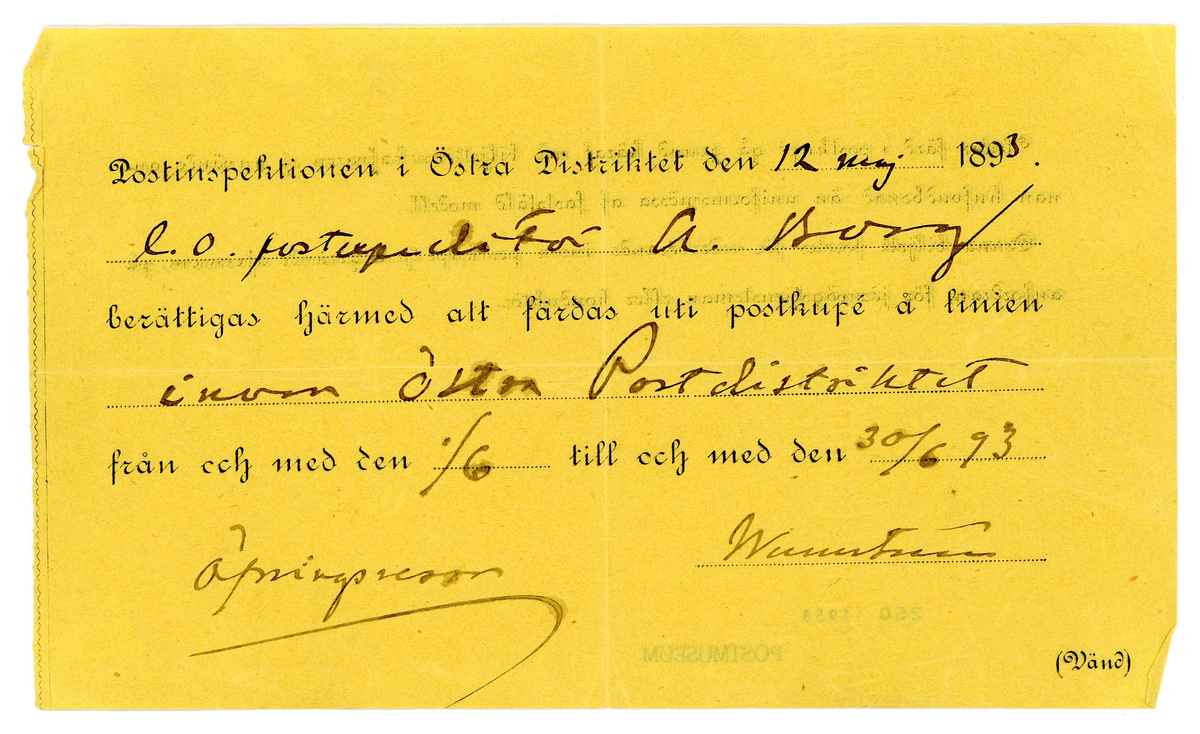 Postinspektionen i Östra Distriktet den 12 maj 1893.
E. O. postexpeditör A. Borg
berättigas härmed att färdas uti postkupé å linien
inom Östra Postdistriktet
från och med den 1/6 till och med den 30/6 93
Öfningsresor
(Vänd)
250 1958
POSTMUSEUM